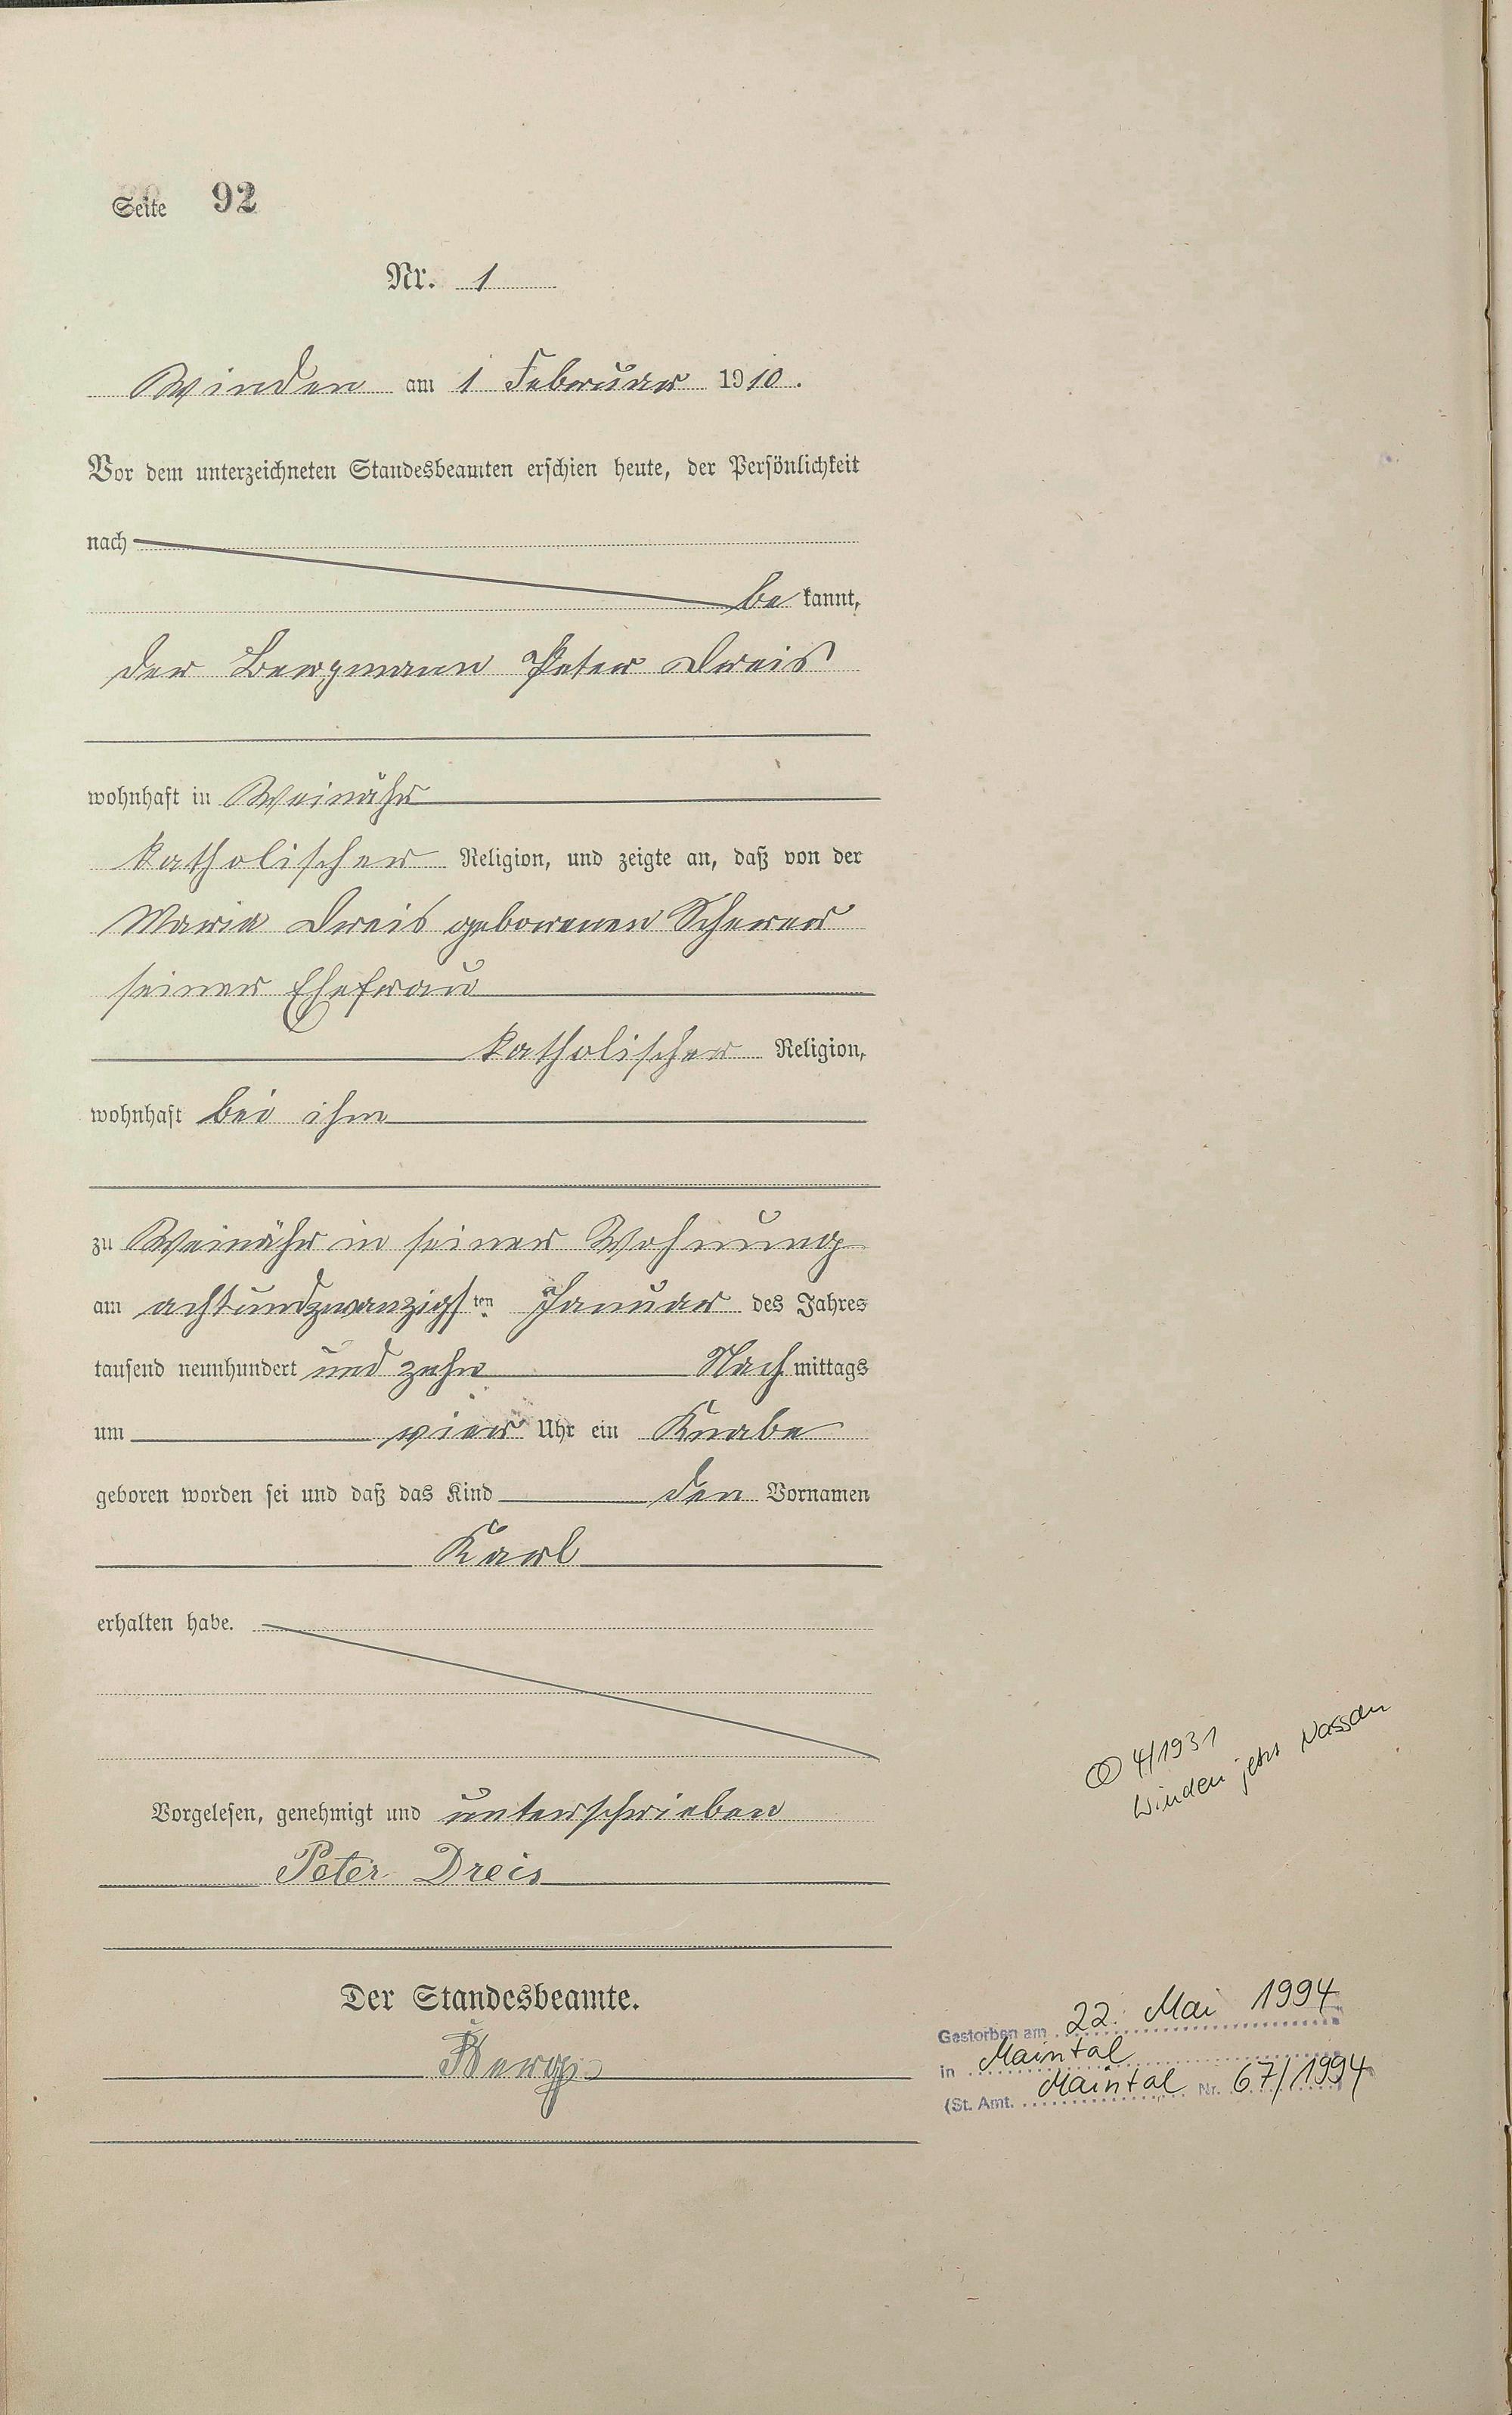 Seite 92
Nr. 1
Winden am 1 Februar 1910.
Vor dem unterzeichneten Standesbeamten erschien heute, der Persönlichkeit
nach
be kannt,
der Bergmann Peter Dreis
wohnhaft in Weinähr
katholischer Religion, und zeigte an, daß von der
Maria Dreis geborenen Scherer
seiner Ehefrau
katholischer Religion,
wohnhaft bei ihm
zu Weinähr in seiner Wohnung
am achtundzwanzigsten Januar des Jahres
tausend neunhundert und zehn Nachmittags
um vier Uhr ein Knabe
geboren worden sei und daß das Kind den Vornamen
Karl
erhalten habe.
Vorgelesen, genehmigt und unterschrieben
Peter Dreis
Der Standesbeamte.
4/1931
Winden jetzt Nassau
Gestorben am 22. Mai 1994
in Maintal
(St. Amt. Maintal Nr. 67/1994